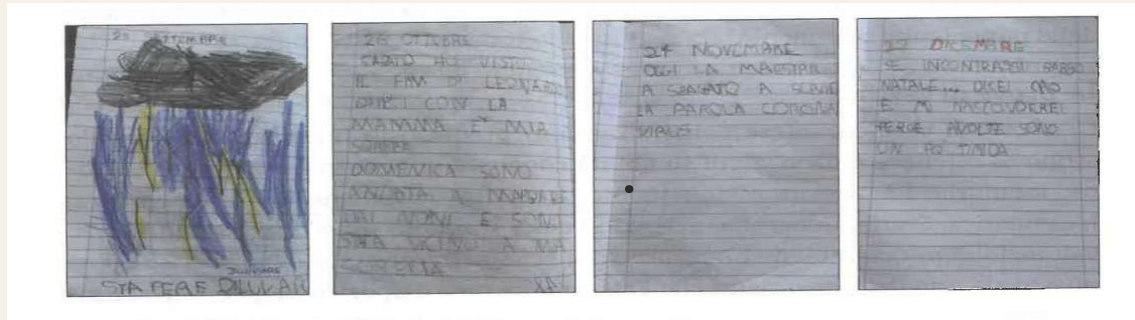 SETTEMBRE
DILUVIARE
STA PERE DILUVIAR
26 OTTOBRE
SABATO HO VISTO
IL FIM DI LEONARDO
CON LA
MAMMA E MIA
SORELA
DOMENICA SONO
ANDATA A
DAI NONI E SONO
STATA VICINO A MIA
SORELLA
24 NOVEMBRE
OGGI LA MAESTRA
A SBAGATO A
LA PAROLA CORONA
VIRUS
22 DICEMBRE
SE INCONTRASSI BABBO
NATALE... DIREI CIAO
E MI NASCONDEREI
PERCE AVOLTE SONO
UN PO' TIMIDA